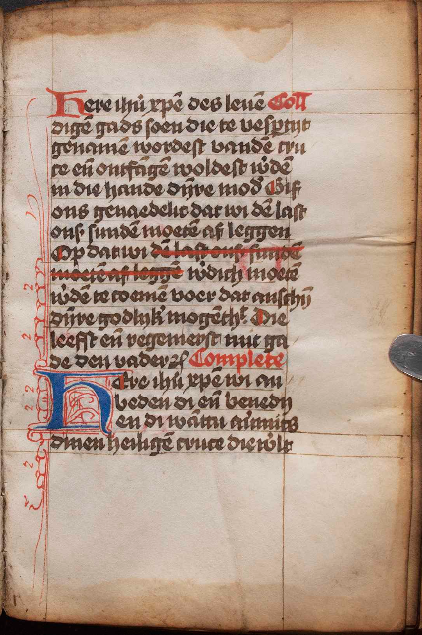 Here ihū xpē des leuē Coll
digē gads soen die te vespertijt
genamē wordest vandē cru
ce eñ ontfāgē woldest wdē
in die hande dijre mod' Gif
ons genaedelic dat wi dē last
ons' sundē moetē af leggen
Op dat wi dē last ons' sundē
moetē af leggē wdich moetē
wdē te comen voer dat anschÿ
dijre godlijk' mogēth' Die
leefst eñ regneerst mit ga
de den vader Complete
Here ihū xpē wi an
beden di eñ benedÿ
en di wātu ouermits
dinen heiligē cruce die w'lt